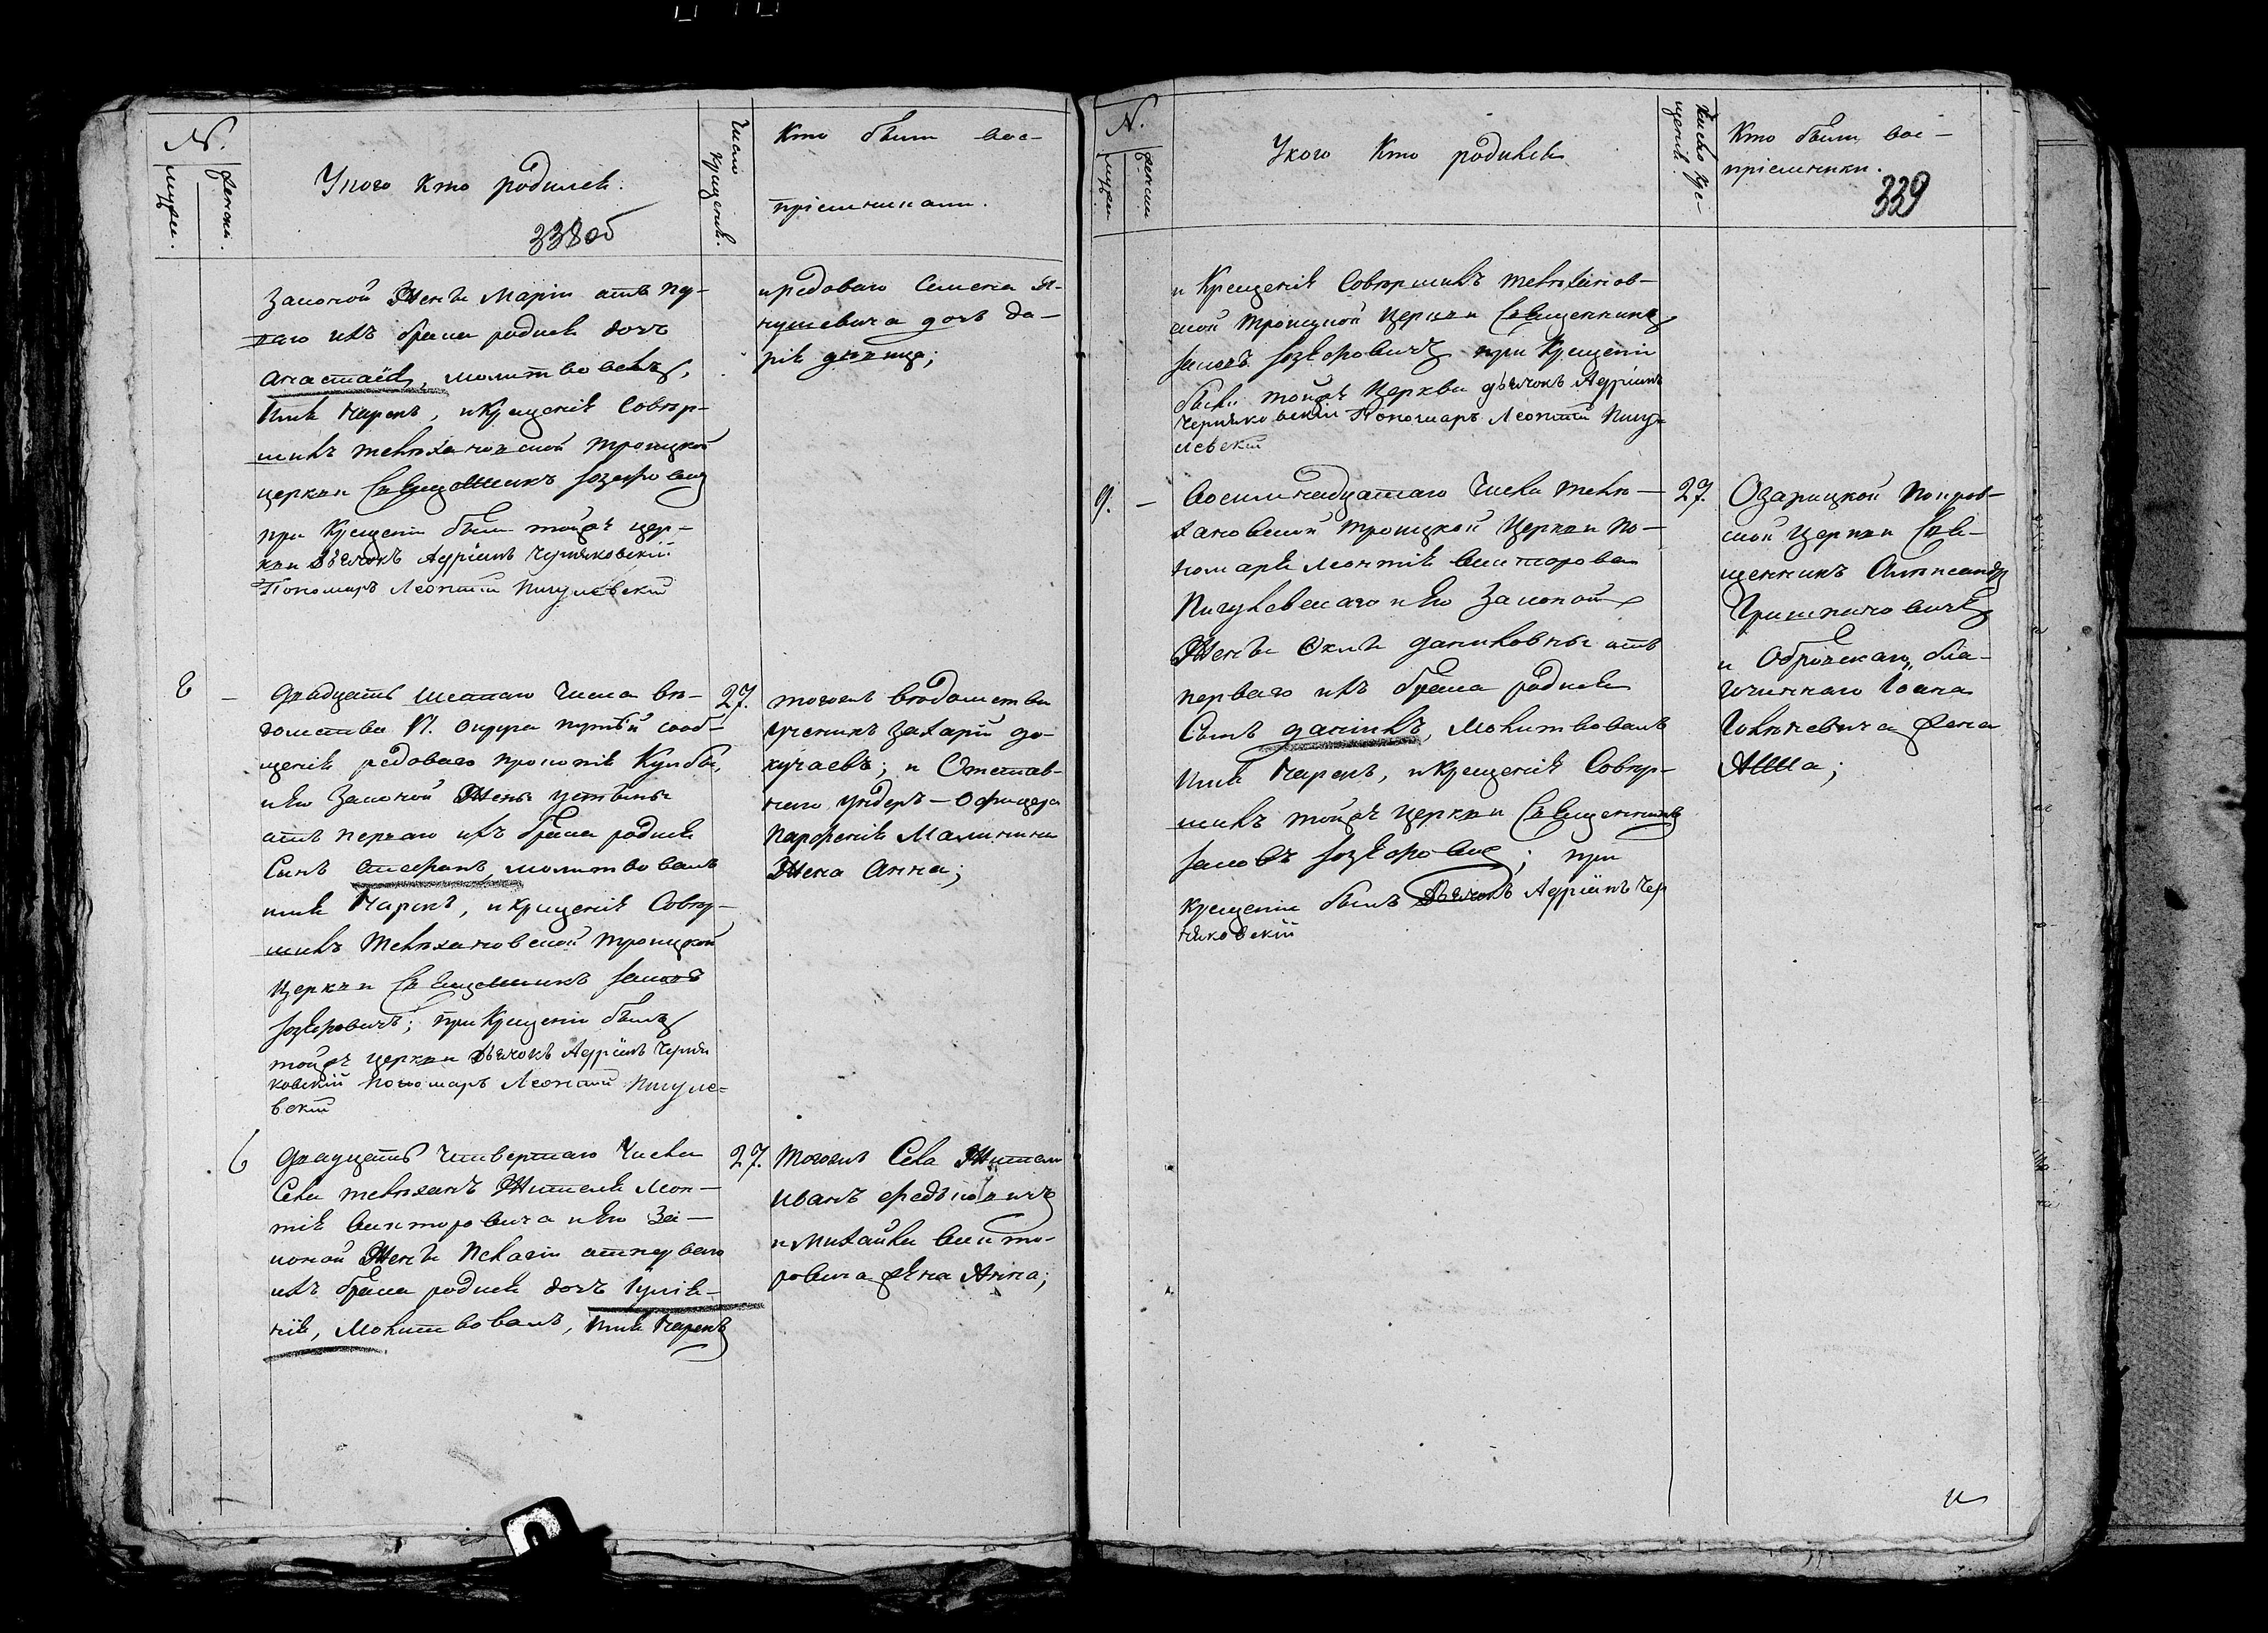 N.
мужеи.
женски.
У кого кто родился.
338 об
Число крещенія.
Кто были вос-
пріемниками.
Законой жены Маріи отъ пер-
ваго ихъ брака родися дочъ
Анастасія, молитвовалъ,
имя нарекъ, и крещеніе совер-
шилъ Телеханской Троицкой
церкви Священникъ
при крещеніи были тойже цер-
кви Дьячокъ Адріанъ Черняковскій
Пономаръ Леонтій Пигулевскій
рядоваго Семена Я-
нушевича дочъ Да-
рія девица;
8 –
Двадцать шестаго числа въ-
домства VI. округа путей сооб-
щенія рядоваго Прокопія
и его законой жены Устины
отъ перваго ихъ брака родися
Сынъ Стефанъ, молитвовалъ
имя нарекъ, и крещеніе совер-
шилъ Телехановской Троицкой
Церкви Священникъ Іаковъ
при крещеніи былъ
тойже церкви Дьячокъ Адріанъ Черня
ковскій Пономаръ Леонтій Пигуле-
вскій
27.
тогожъ вѣдомства
ученикъ Захарій До-
кучаевъ; и Отстав-
наго ундеръ-Офицера
Парфенія Малинина
жена Анна;
6
Двадцать четвертаго числа
Села Телеханъ жителя Леон-
тія Викторовича и его за-
коной жены Пелагіи отъ перваго
ихъ брака родися дочъ Іуліа-
нія, молитвовалъ, имя нарекъ
27.
Тогожъ Села житель
Иванъ Федьковичъ
и Михайла Викто-
ровича жена Анна;
N.
мужеи
женски
У кого кто родился
Число кре-
щенія.
Кто были вос-
пріемники.
339
и Крещеніе совершилъ Телеханов-
ской Троицкой Церкви Священникъ
Іаковъ при крещеніи
были тойже Церкви дьячокъ Адріанъ
Черняковскій Пономаръ Леонтій Пигу-
левскій
9. –
Восемнадцатаго числа Теле-
хановской Троицкой Церкви По-
номаря Леонтія Викторова
Пигулевскаго и его законой
жены Феклы Даниловны отъ
перваго ихъ брака родися
Сынъ Даніилъ, молитвовалъ
имя нарекъ, и крещеніе совер-
шилъ тойже церкви Священникъ
Іаковъ при
крещеніи былъ Дьячокъ Адріанъ Чер
няковскій
27.
Озарицкой Покров-
ской Церкви Свя-
щенникъ Александръ
и Обровскаго бла-
гочиннаго Іоана
жена
Анна;